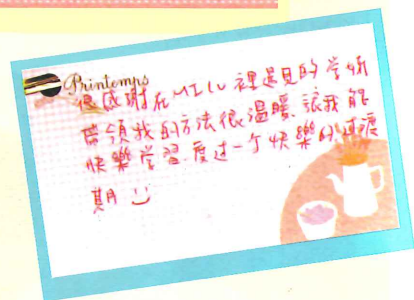 Printemps
很感謝在MILU裡遇見的学姐
带領我的方法很溫暖 讓我能
快樂学習 度过一个快樂的过渡
期 :)